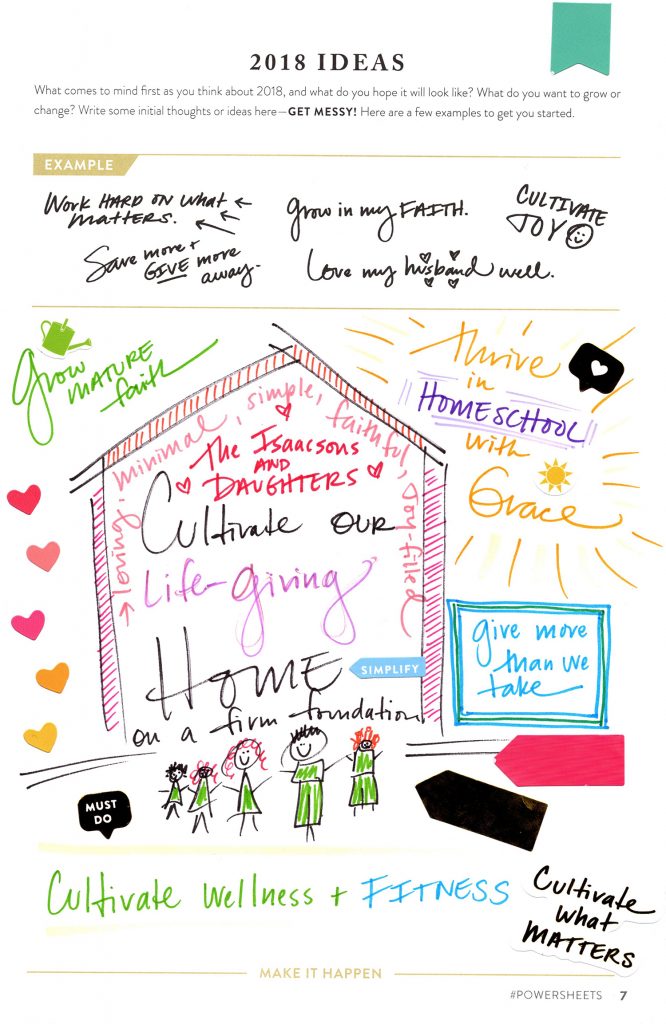 2018 IDEAS
What comes to mind first as you think about 2018, and what do you hope it will look like? What do you want to grow or
change? Write some initial thoughts or ideas here—GET MESSY! Here are a few examples to get you started.
EXAMPLE
Work HARD ON what
matters.
Grow in my FAITH.
CULTIVATE
JOY
Save more +
GIVE more
away.
Love my husband well.
Grow
MATURE
faith
thrive
in
HOMESCHOOL
with
Grace
loving, minimal, simple, faithful, Joy-filled
The Isaacsons
AND
DAUGHTERS
Cultivate OUR
Life-Giving
HOME
SIMPLIFY
on a firm foundation
give more
than we
take
MUST
DO
Cultivate wellness + FITNESS
Cultivate
what
MATTERS
MAKE IT HAPPEN
#POWERSHEETS 7